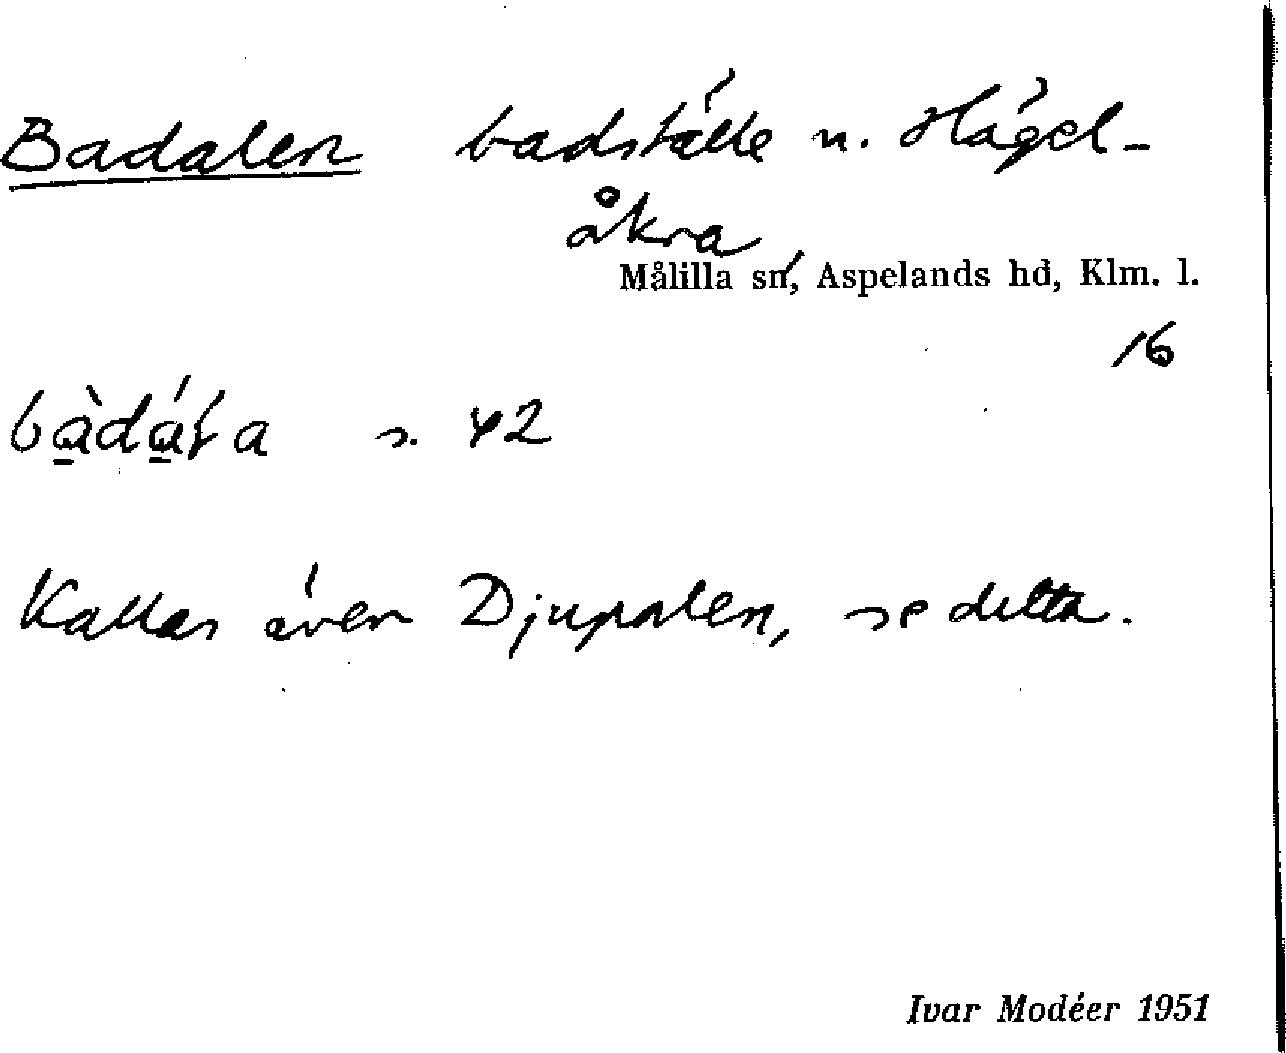 Badalen badställe n. Hägel-
åkra
Målilla sn, Aspelands hd, Klm. l.
16
s. 42
Kallas även Djupalen, se detta.
Ivar Modéer 1951